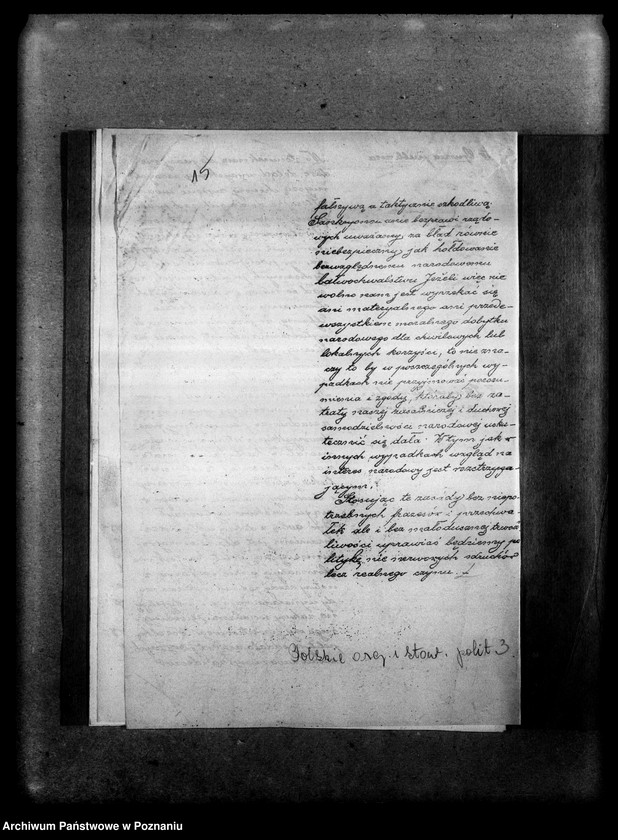 15
fałszywą a taktycznie szkodliwą.
Sankcyonowanie bezprawi rządo-
wych uważamy za błąd równie
niebezpieczny, jak hołdowanie
bezwzględnemu narodowemu
bałwochwalstwu. Jeżeli więc nie
wolno nam jest wyrzekać się
ani materyalnego ani przede-
wszystkiem moralnego dobytku
narodowego dla chwilowych lub
lokalnych korzyści, to nie zna-
czy to by w poszczególnych wy-
padkach nie przyjmować porozu-
mienia i zgody, któraby bez za-
traty naszej zasadniczej i duchowej
samodzielności narodowej usku-
tecznić się dała. W tym jak w
innych wypadkach wzgląd na
interes narodowy jest rozstrzyga-
jącym.
Stosując te zasady bez niepo-
trzebnych frazesów i przechwa-
łek ale i bez małodusznej trwoż-
liwości uprawiać będziemy po-
litykę nie nerwowych odruchów
lecz realnego czynu.
Polskie org. i stow. polit. 3.
Archiwum Państwowe w Poznaniu